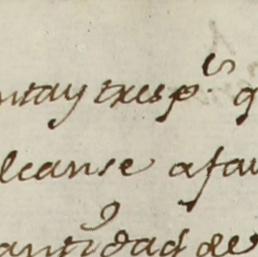 ntay tres p.s q
lcanse a fau
antidad de